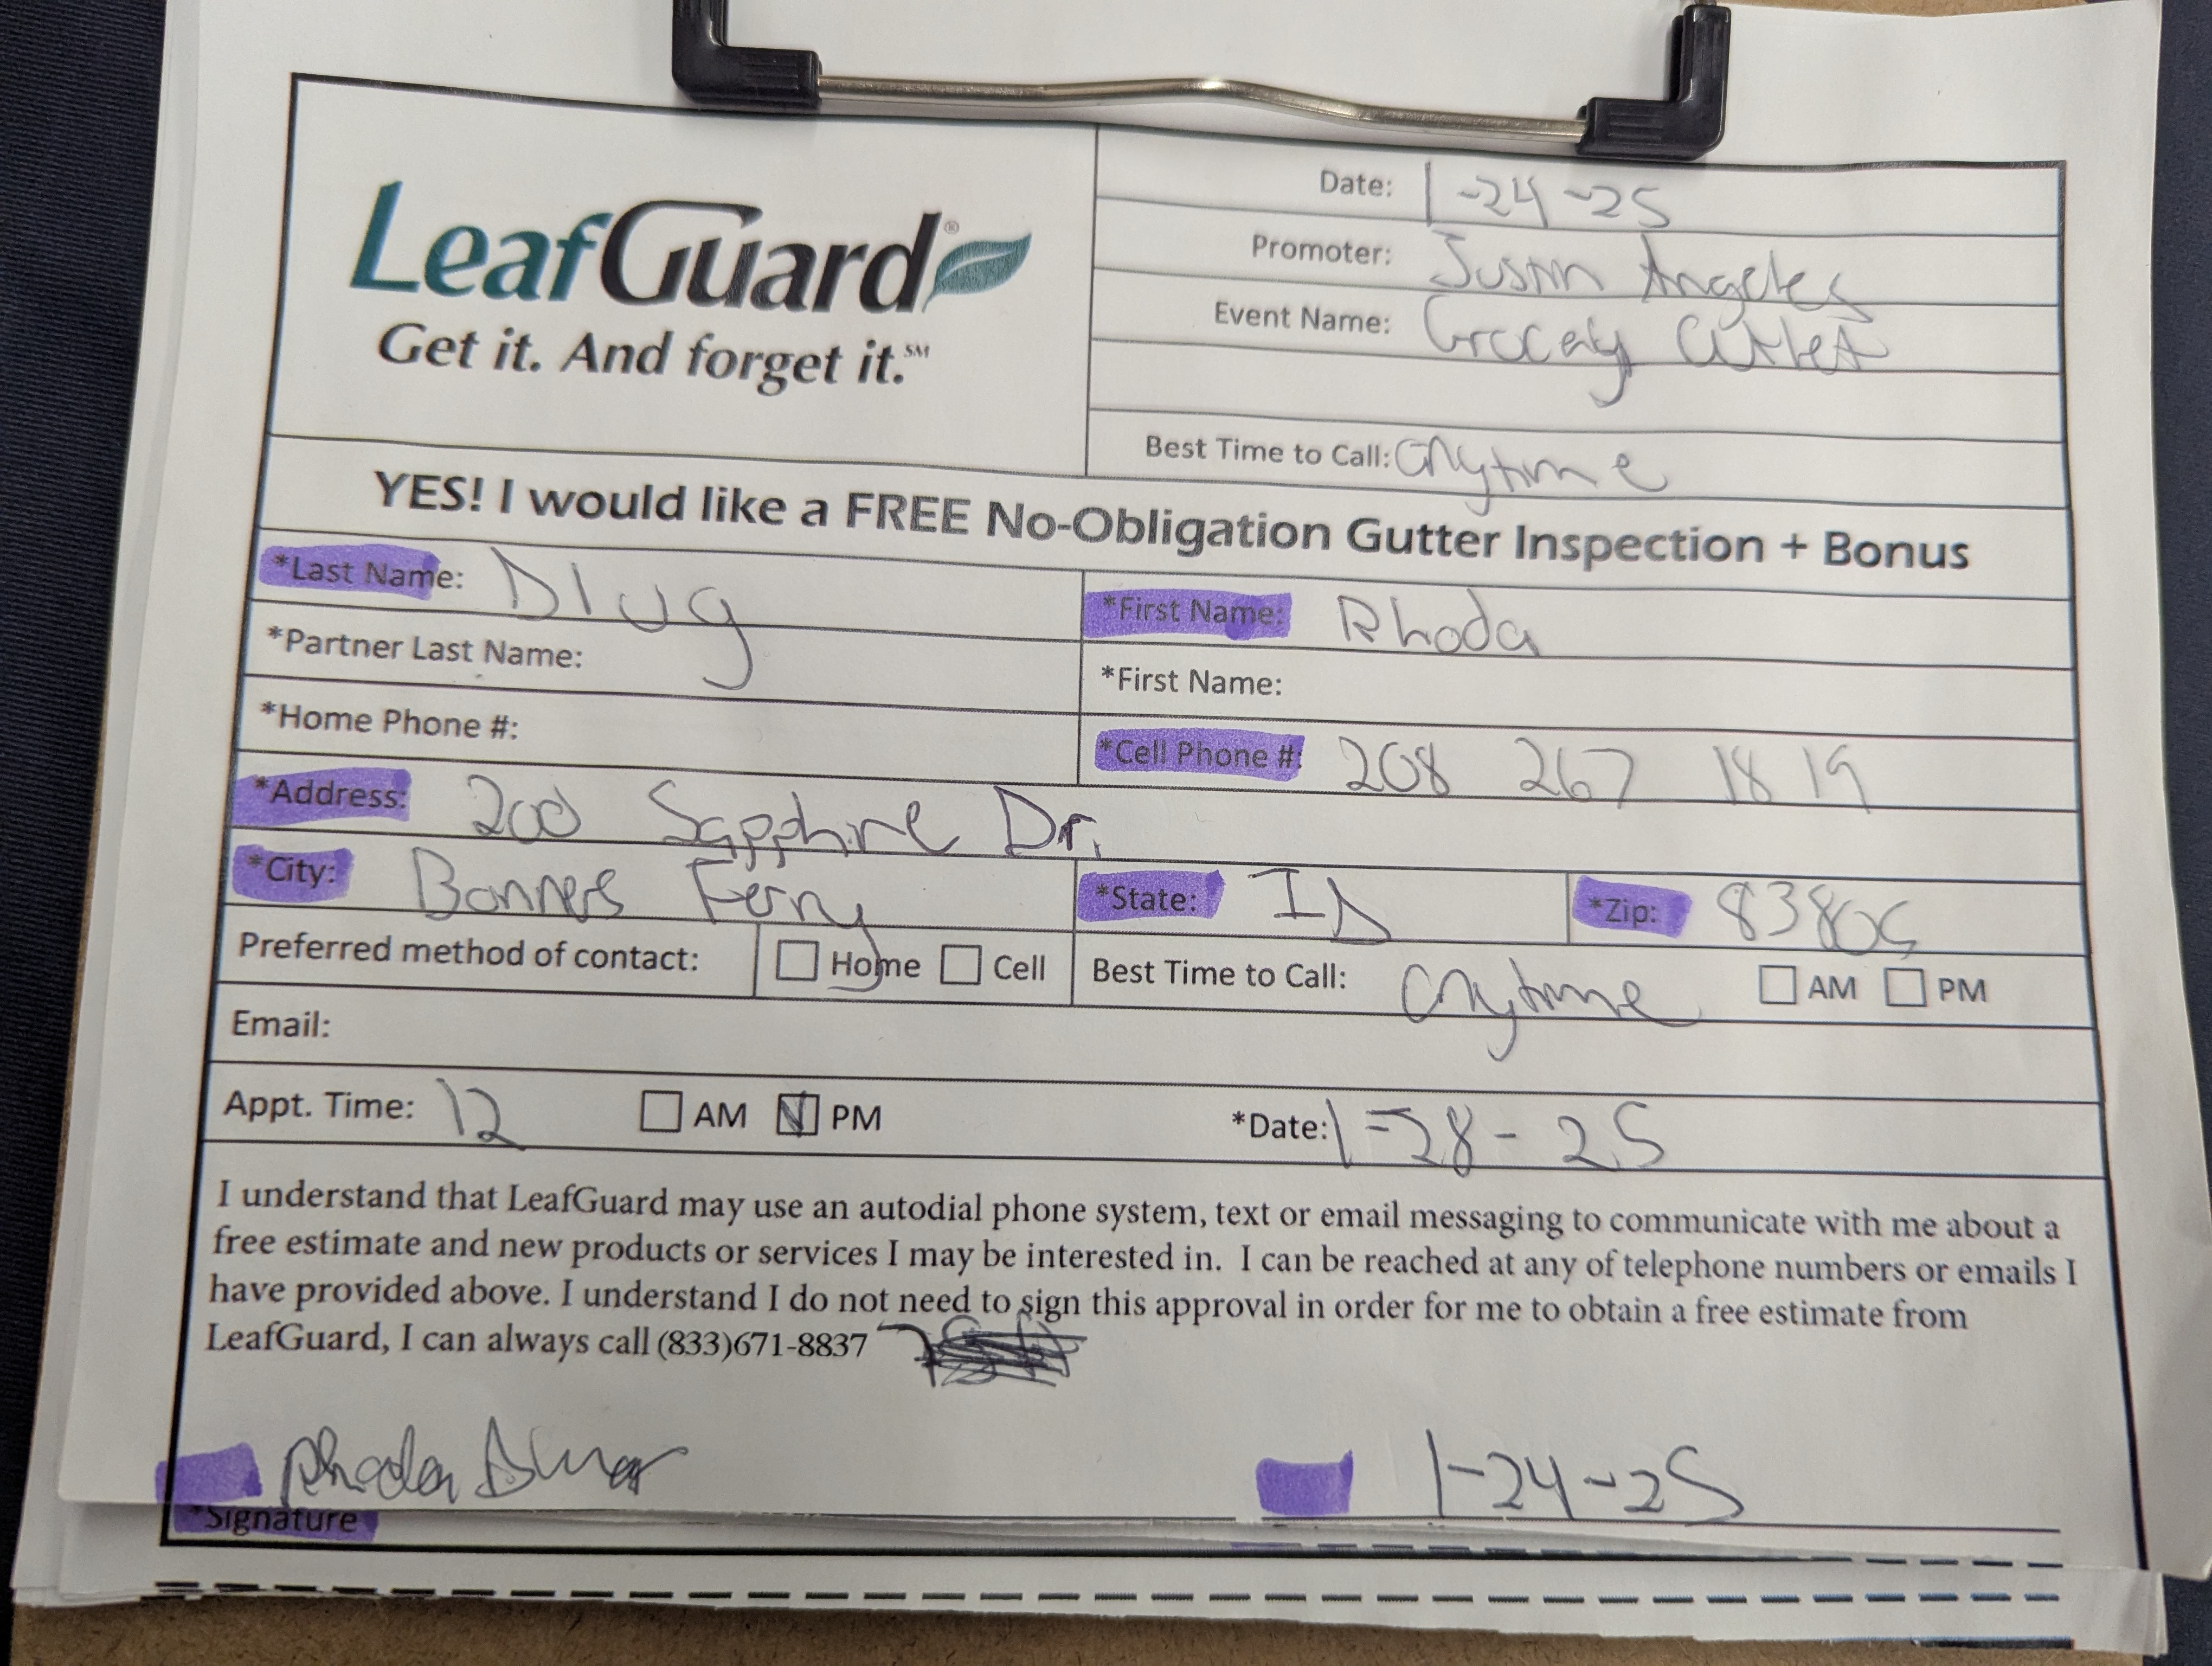 LeafGuard®
Get it. And forget it.℠
Date: 1-24-25
Promoter: Justin Angeles
Event Name: Grocery Outlet
Best Time to Call: anytime
YES! I would like a FREE No-Obligation Gutter Inspection + Bonus
*Last Name: Dlug *First Name: Rhoda
*Partner Last Name: *First Name:
*Home Phone #: *Cell Phone #: 208 267 1819
*Address: 200 Sapphire Dr.
*City: Bonners Ferry *State: ID *Zip: 83805
Preferred method of contact: Home Cell Best Time to Call: anytime AM PM
Email:
Appt. Time: 12 AM PM *Date: 1-28-25
I understand that LeafGuard may use an autodial phone system, text or email messaging to communicate with me about a
free estimate and new products or services I may be interested in. I can be reached at any of telephone numbers or emails I
have provided above. I understand I do not need to sign this approval in order for me to obtain a free estimate from
LeafGuard, I can always call (833)671-8837
Rhoda Dlug 1-24-25
*Signature